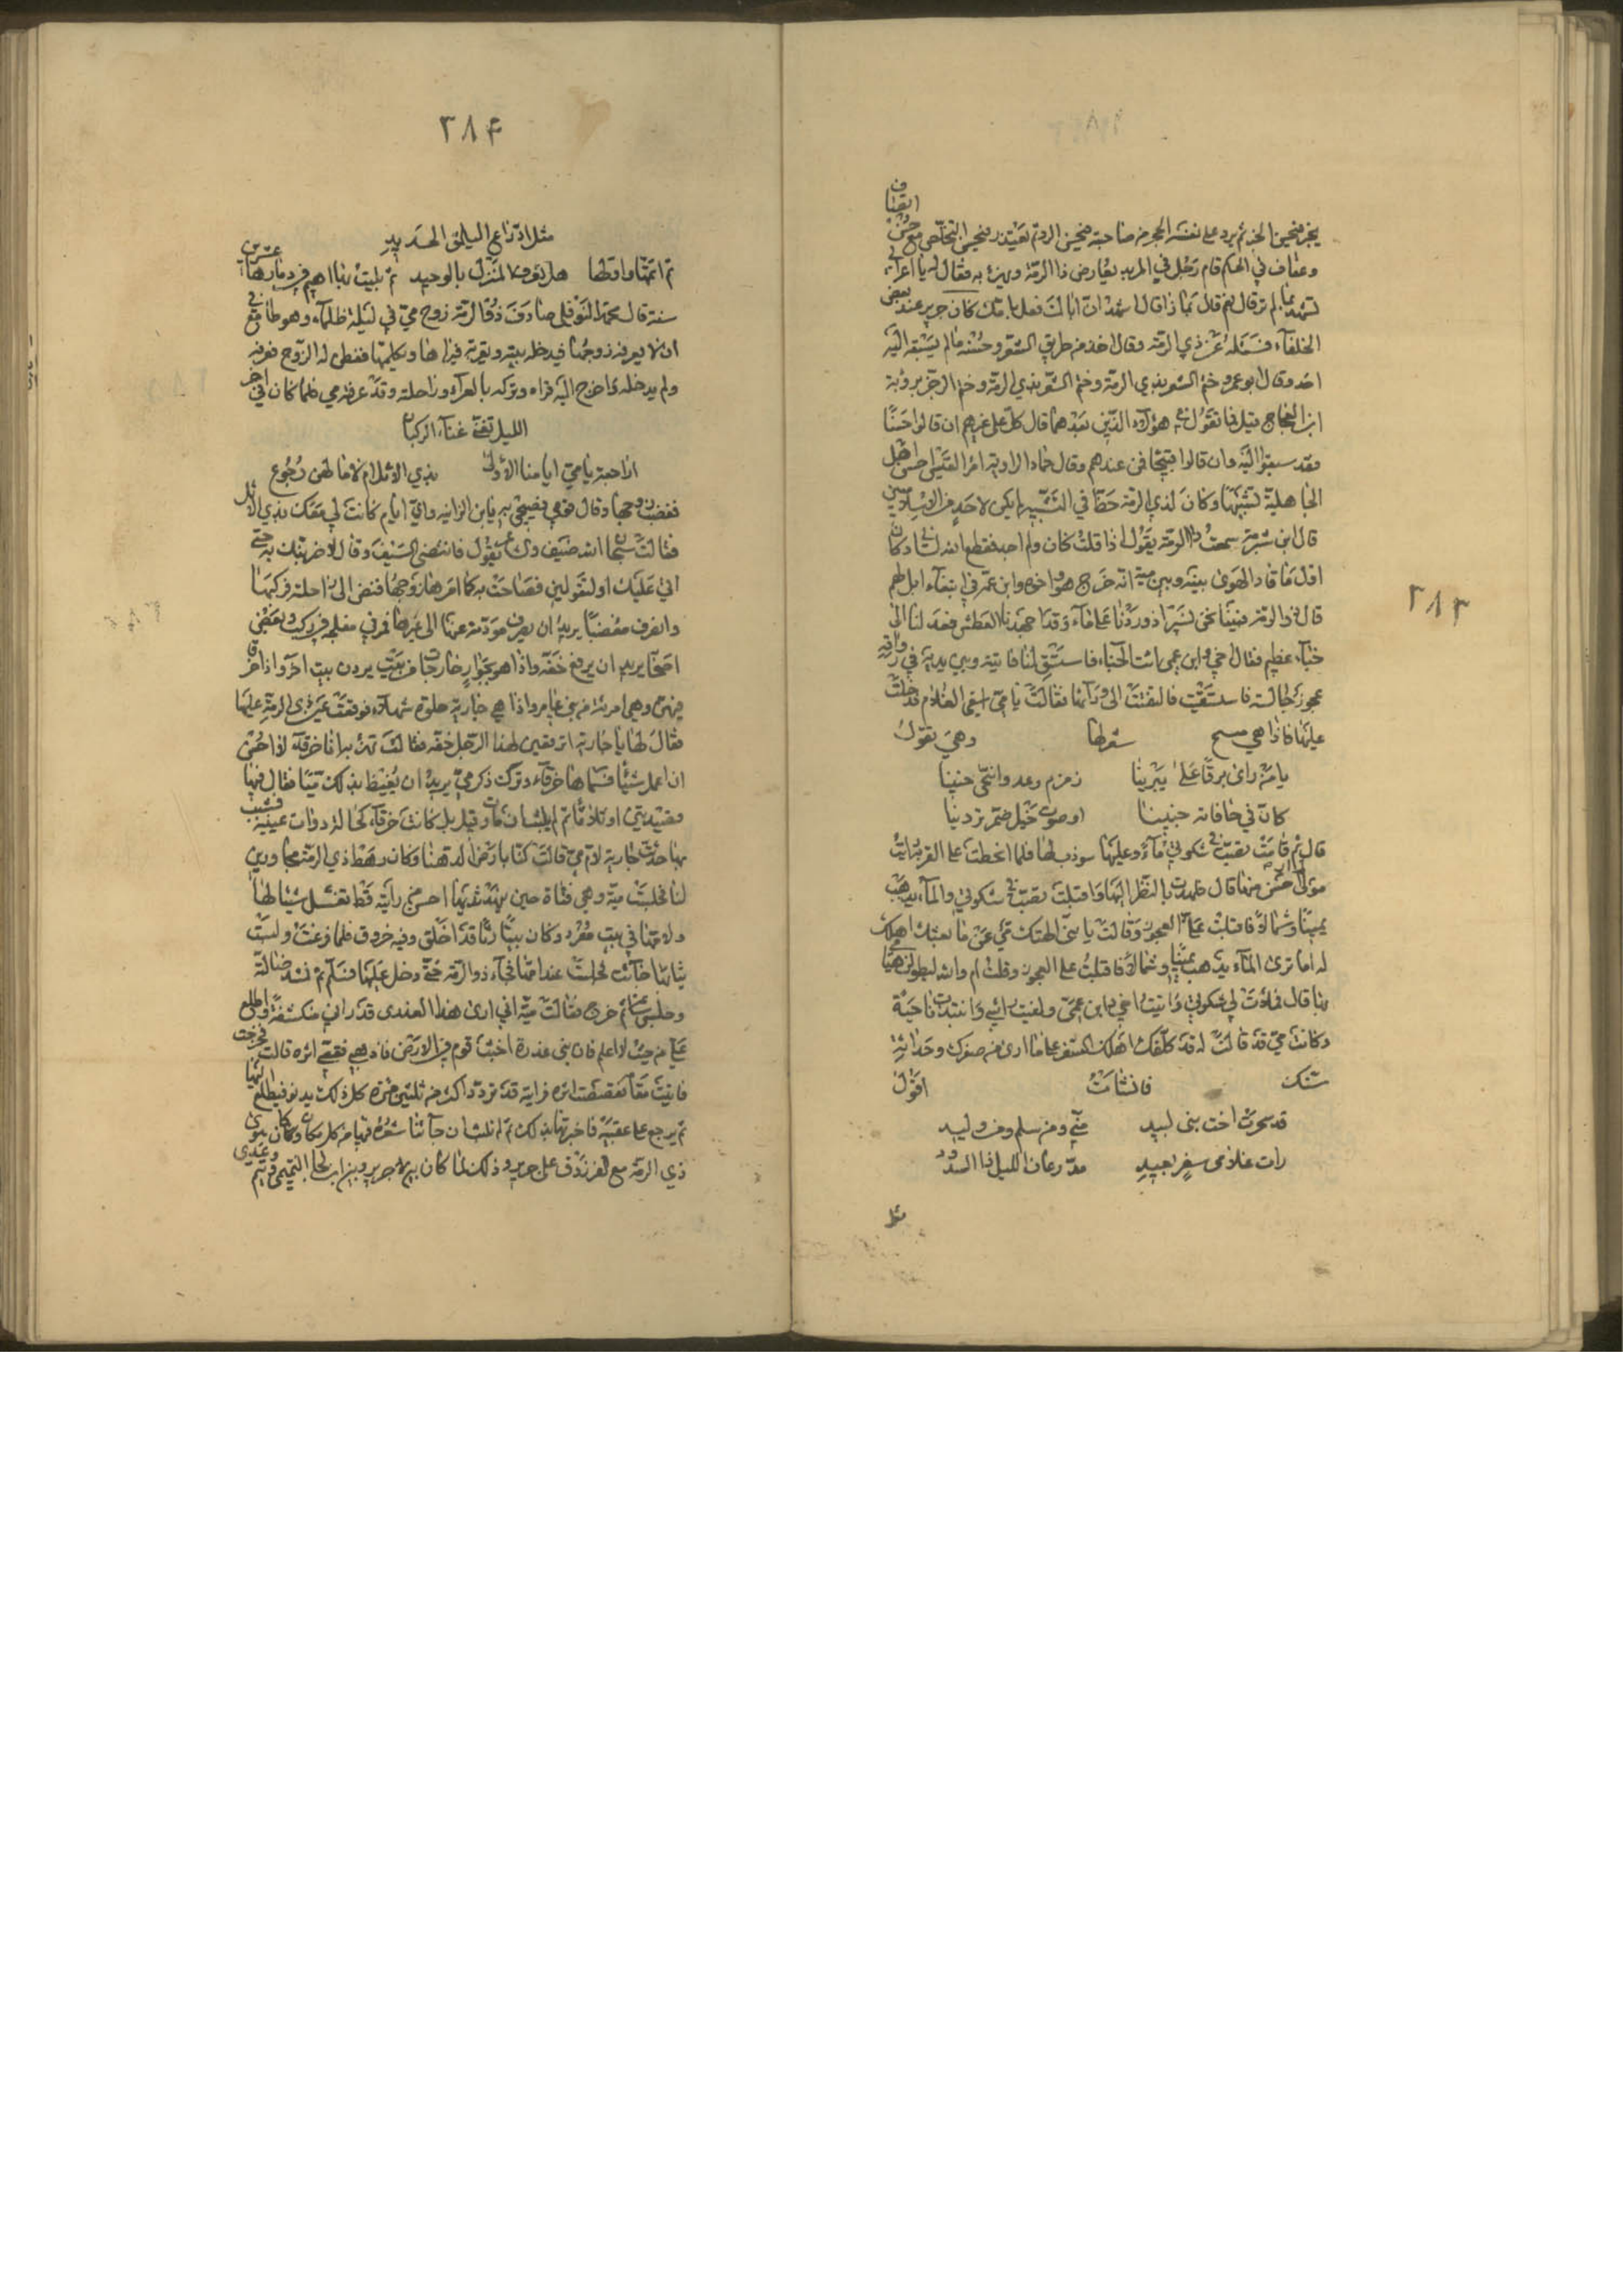 ٢٨٣
وعفاف في الحكم قام رجل في المربد يعارض ذا الرمة ويهزء به فقال له يا اعرابي
اتشهد بما لم تر قال نعم قال بماذا قال اشهد ان اباك امك كان جرير عند بعض
الخلفاء فسئله عن ذي الرمة وقال اخذ من طريق الشعر وحسنه ما لم يسبقه اليه
احد وقال ابو عمرو ختم الشعر بذي الرمة وختم الشعر بذي الرمة وختم الرجز برؤبة
ابن العجاج قيل فما تقول في هؤلاء الذين بعدهما قال كل على غيرهم ان قالوا حسنا
فقد سبقوا اليه وان قالوا قبيحا فمن عندهم وقال حماد الراوية امرؤ القيس احسن اهل
الجاهلية تشبيها وكان لذي الرمة حظا في التشبيه لم يكن لاحد من الاسلاميين
قال ابن شبرمة سمعت ذا الرمة يقول اذا قلت كان ولم اجد فقطع الله لساني وكان
اول ما قاد الهوى بينه وبين مية انه خرج هو واخوه وابن عمه في ابتغاء ابل لهم
قال ذو الرمة فبينا نحن نسير اذ وردنا على ماء وقد اجهدنا العطش فعدلنا الى
خباء عظيم فقال اخي وابن عمي ائت الخباء فاستسق لنا فاتيته وبين يديه في رواقه
عجوز جالسة فاستسقيت فالتفتت الى ورآئها فقالت يا مي اسقي الغلام فدخلت
عليها فاذا هي تسبح شعرا لها وهي تقول
يا من راى برقا على يبرينا زمزم رعده وانتحى حنينا
كان في حافاته حنينا او صوت خيل ضمر تردينا
قال ثم قامت تصب في شكوتي ماء وعليها شوذب لها فلما انحطت على القربة رايت
مولى لم ار احسن منها قال فلهوت بالنظر اليها واقبلت تصب في شكوتي والماء يذهب
يمينا وشمالا فاقبلت علي العجوز وقالت يا بني الهتك مي عن ما بعثك اهلك
له اما ترى الماء يذهب يمينا وشمالا فاقبلت على العجوز وقلت ام والله ليطولن هيامي
بها قال فملات لي شكوتي واتيت اخي وابن عمي ولففت راسي وانتبذت ناحية
وكانت مي قد قالت لقد كلفك اهلك السفر على ما ارى من صغرك وحداثة
سنك فانشات اقول
قد سحرت اخت بني لبيد مني ومن سلم ومن وليد
رات غلامي سفر بعيد يدرعان الليل ذا السدود
مثل
٢٨٤
مثل ادراع اليلمق الجديد
ثم اتمتها وقطها هل تعرف المنزل بالوحيد ثم لبثت بها اهيم في ديارها عشرين
سنة قال محمد النوفلي صادف ذو الرمة زوج مي في ليلة ظلماء وهو طامع في
ان لا يعرفه زوجها فيدخله بيته ويقريه فيراها ويكلمها ففطن له الزوج فعرفه
ولم يدخله واخرج اليه قراه وتركه بالعراء وراحلته وقد عرفته مي فلما كان في اخر
الليل تغنى غناء الركبان
اراجعة يا مي ايامنا الاولى بذي الاثل ام لا ما لهن رجوع
فغضب زوجها وقال قومي فصيحي به يا ابن الزانية واي ايام كانت لي معك بذي الاثل
فقالت سبحان الله ضيف وشاعر يقول فانتضى السيف وقال لاضربنك به حتى
اتي عليك او لتقولين فصاحت به كما امرها زوجها فنهض الى راحلته فركبها
وانصرف مغضبا يريد ان يصرف مودته عنها الى غيرها فمر في بفلج في ركب وبعض
اصحابه يريد ان يرفع خفه واذا هو بجوار خارجات من بيت يردن بيت اخر واذا خرقا
فيهن وهي امرئة من بني عامر واذا هي جارية حلوة شهلاء فوقعت عين ذي الرمة عليها
فقال لها يا جارية اترقعين لهذا الرجل خفه فقالت تهزء به انا خرقاء لا احسن
ان اعمل شيئا فسماها خرقاء وترك ذكر مي يريد ان يغيظ بذلك ميا فقال فيها
قصيدتين او ثلاثا ثم لم يلبث ان مات وقيل بل كانت خرقاء كحالة داوت عينيه فشبب
بها حدثت جارية لام مي قالت كنا بارض الدهنا وكان رهط ذي الرمة مجاورين
لنا فجلست مية وهي فتاة حين نهد ثدياها احسن من رايته قط تغسل ثيابا لها
ولامها في بيت مفرد وكان بيتا رثا قد اخلق وفيه خروق فلما فرغت ولبست
ثيابها جائت فجلست عند امها فجاء ذو الرمة حتى دخل عليها فسلم ثم نشد ضالة
وجلس ساعة ثم خرج فقالت مية اني ارى هذا العدوي قد راني منكشفة واطلع
علي من حيث لا اعلم فان بني عذرة اخبث قوم في الارض فاذهبي فقصي اثره قالت فخرجت
فقصصت اثره فرايته قد تردد اكثر من ثلثين مرة كل ذلك يدنو فيطلع اليها
ثم يرجع على عقبيه فاخبرتها بذلك ثم لم نلبث ان جآئنا شعره فيها من كل مكان وكان هوى
ذي الرمة مع الفرزدق على جرير وذلك لما كان بين جرير وبين ابن لجا التيمي وتيم وعدي